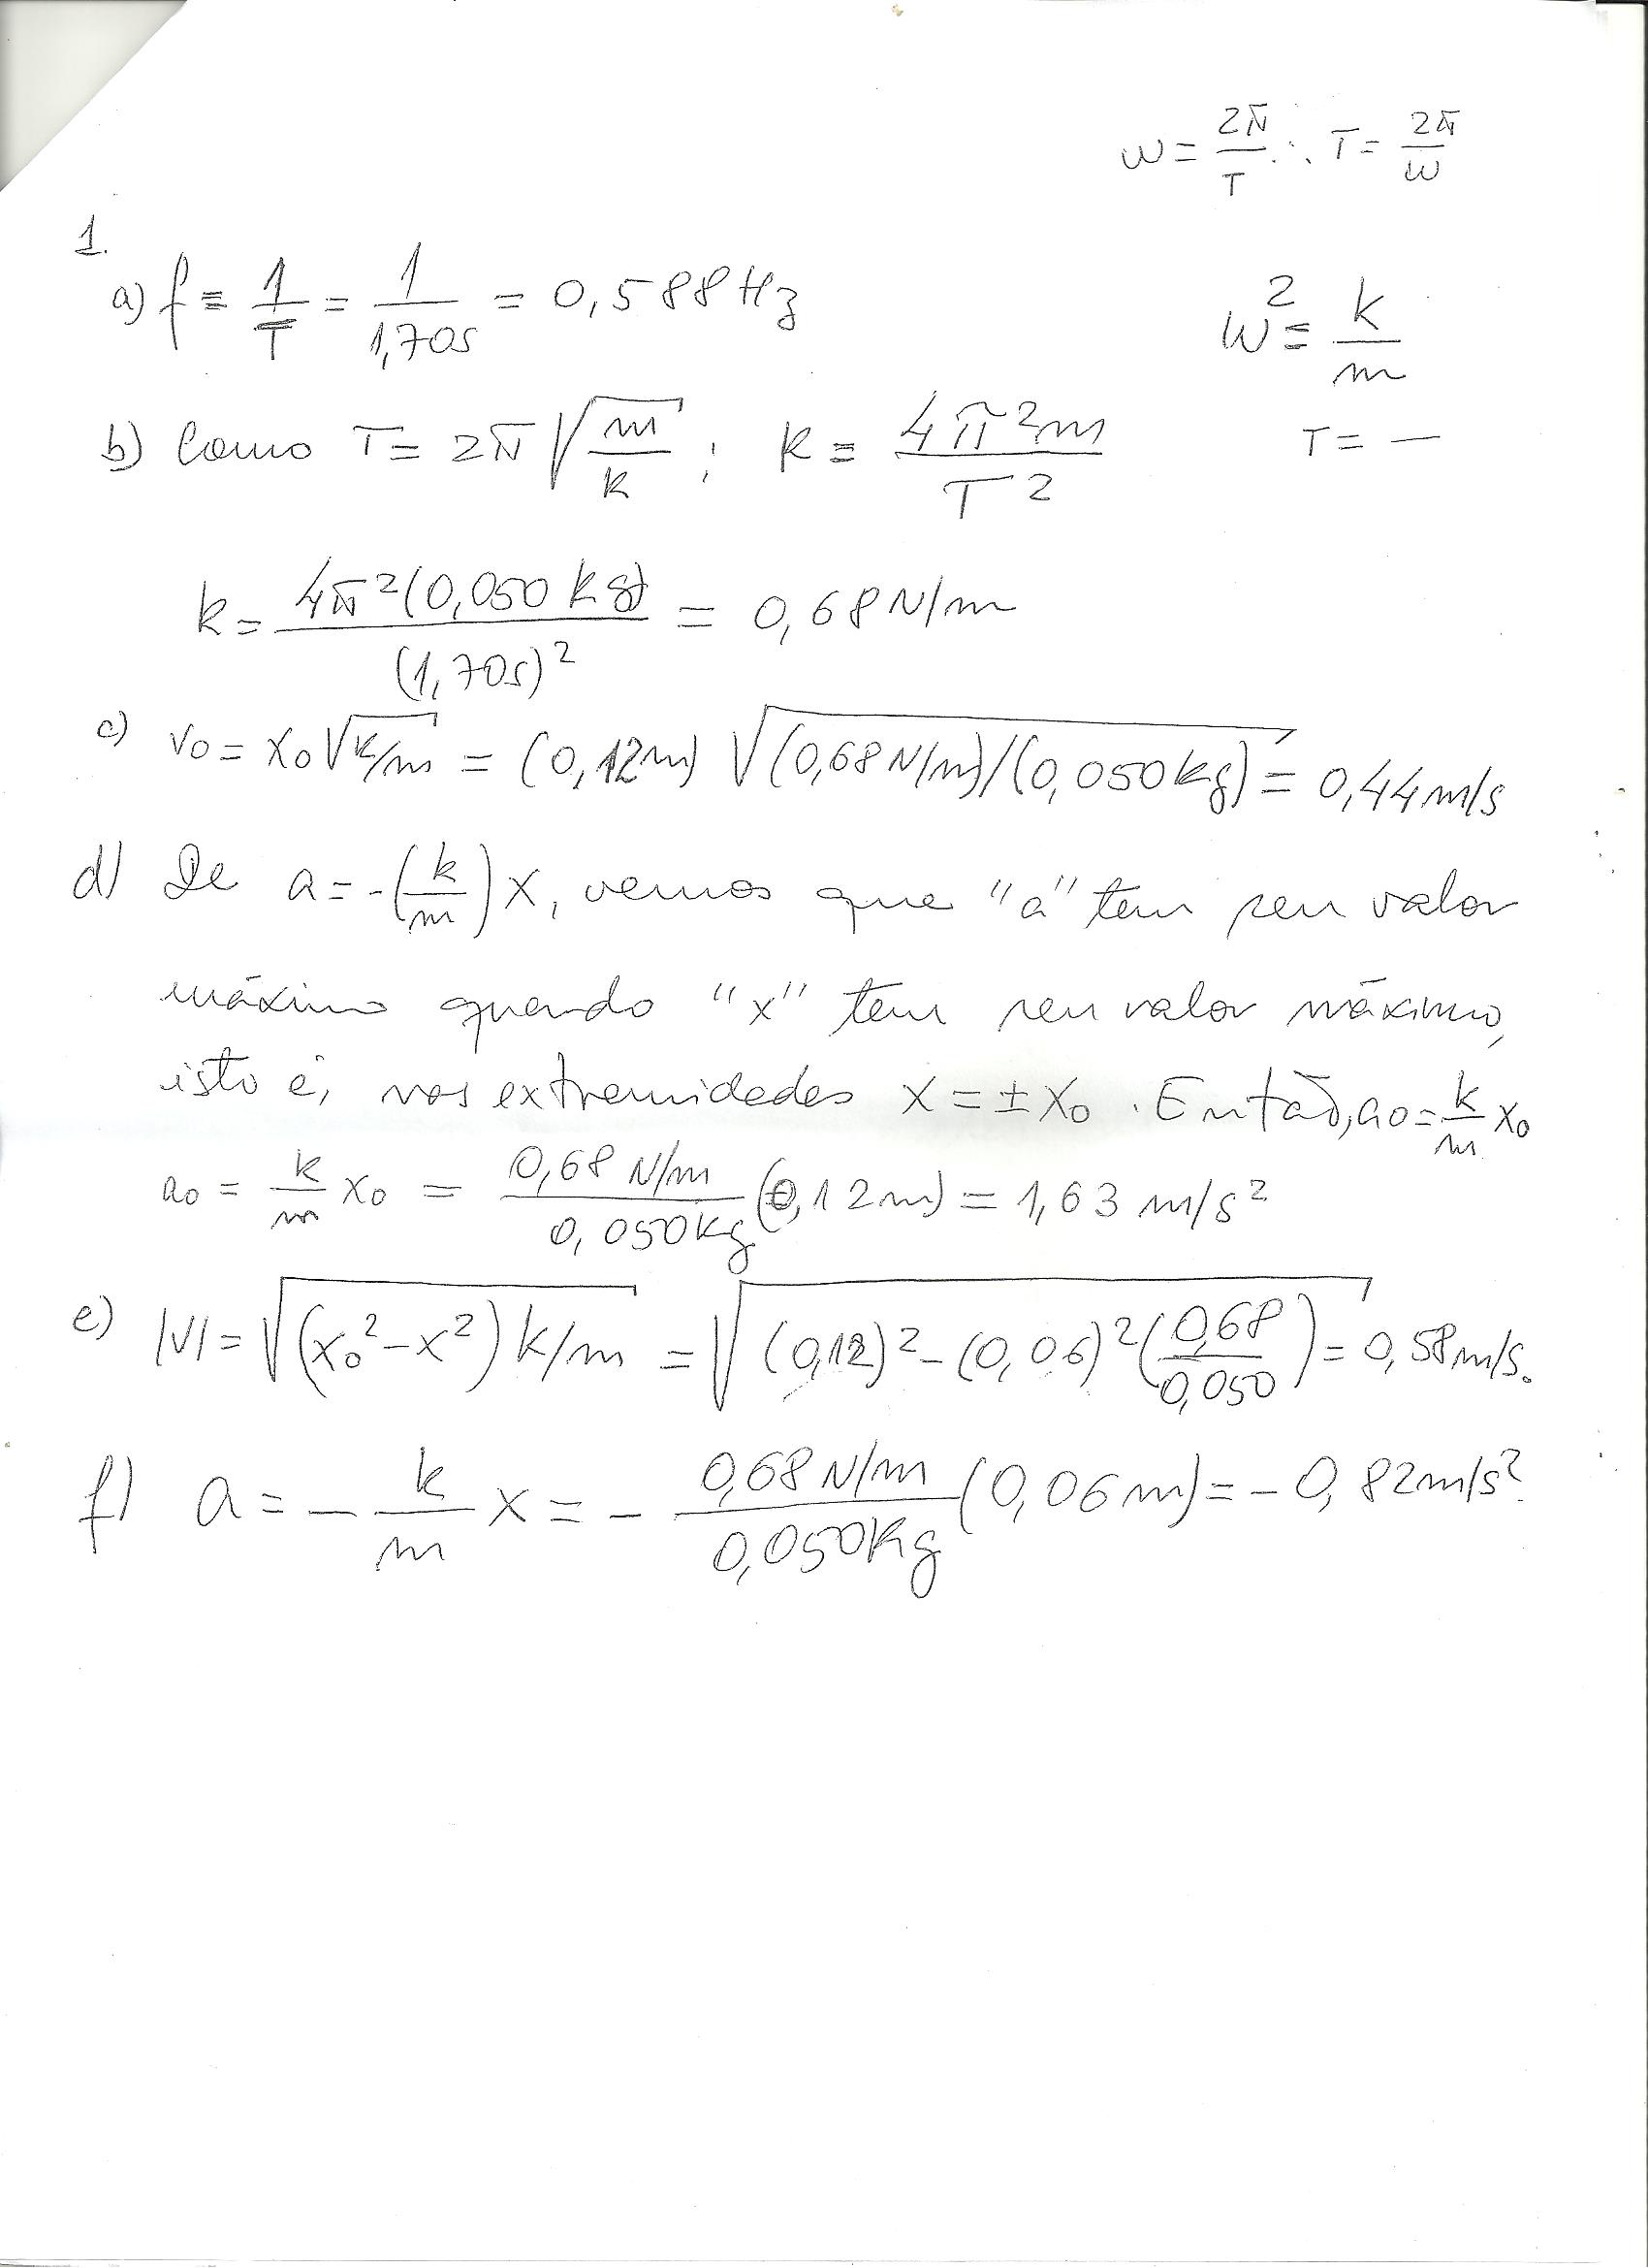 w = 2π/T ∴ T = 2π/w
1.
a) f = 1/T = 1/1,70s = 0,588 Hz
w² = k/m
b) Como T = 2π√(m/k) ; k = 4π²m/T²
T = —
k = 4π²(0,050 kg)/(1,70s)² = 0,68 N/m
c) v0 = x0√(k/m) = (0,12m) √((0,68 N/m)/(0,050kg)) = 0,44 m/s
d) De a = -(k/m)x, vemos que "a" tem seu valor
máximo quando "x" tem seu valor máximo,
isto é, nas extremidades x = ± x0 . Então, a0 = k/m x0
a0 = k/m x0 = 0,68 N/m/0,050kg (0,12m) = 1,63 m/s²
e) |v| = √((x0² - x²) k/m) = √((0,12)² - (0,06)² (0,68/0,050)) = 0,58 m/s.
f) a = - k/m x = - 0,68 N/m/0,050kg (0,06m) = - 0,82 m/s².